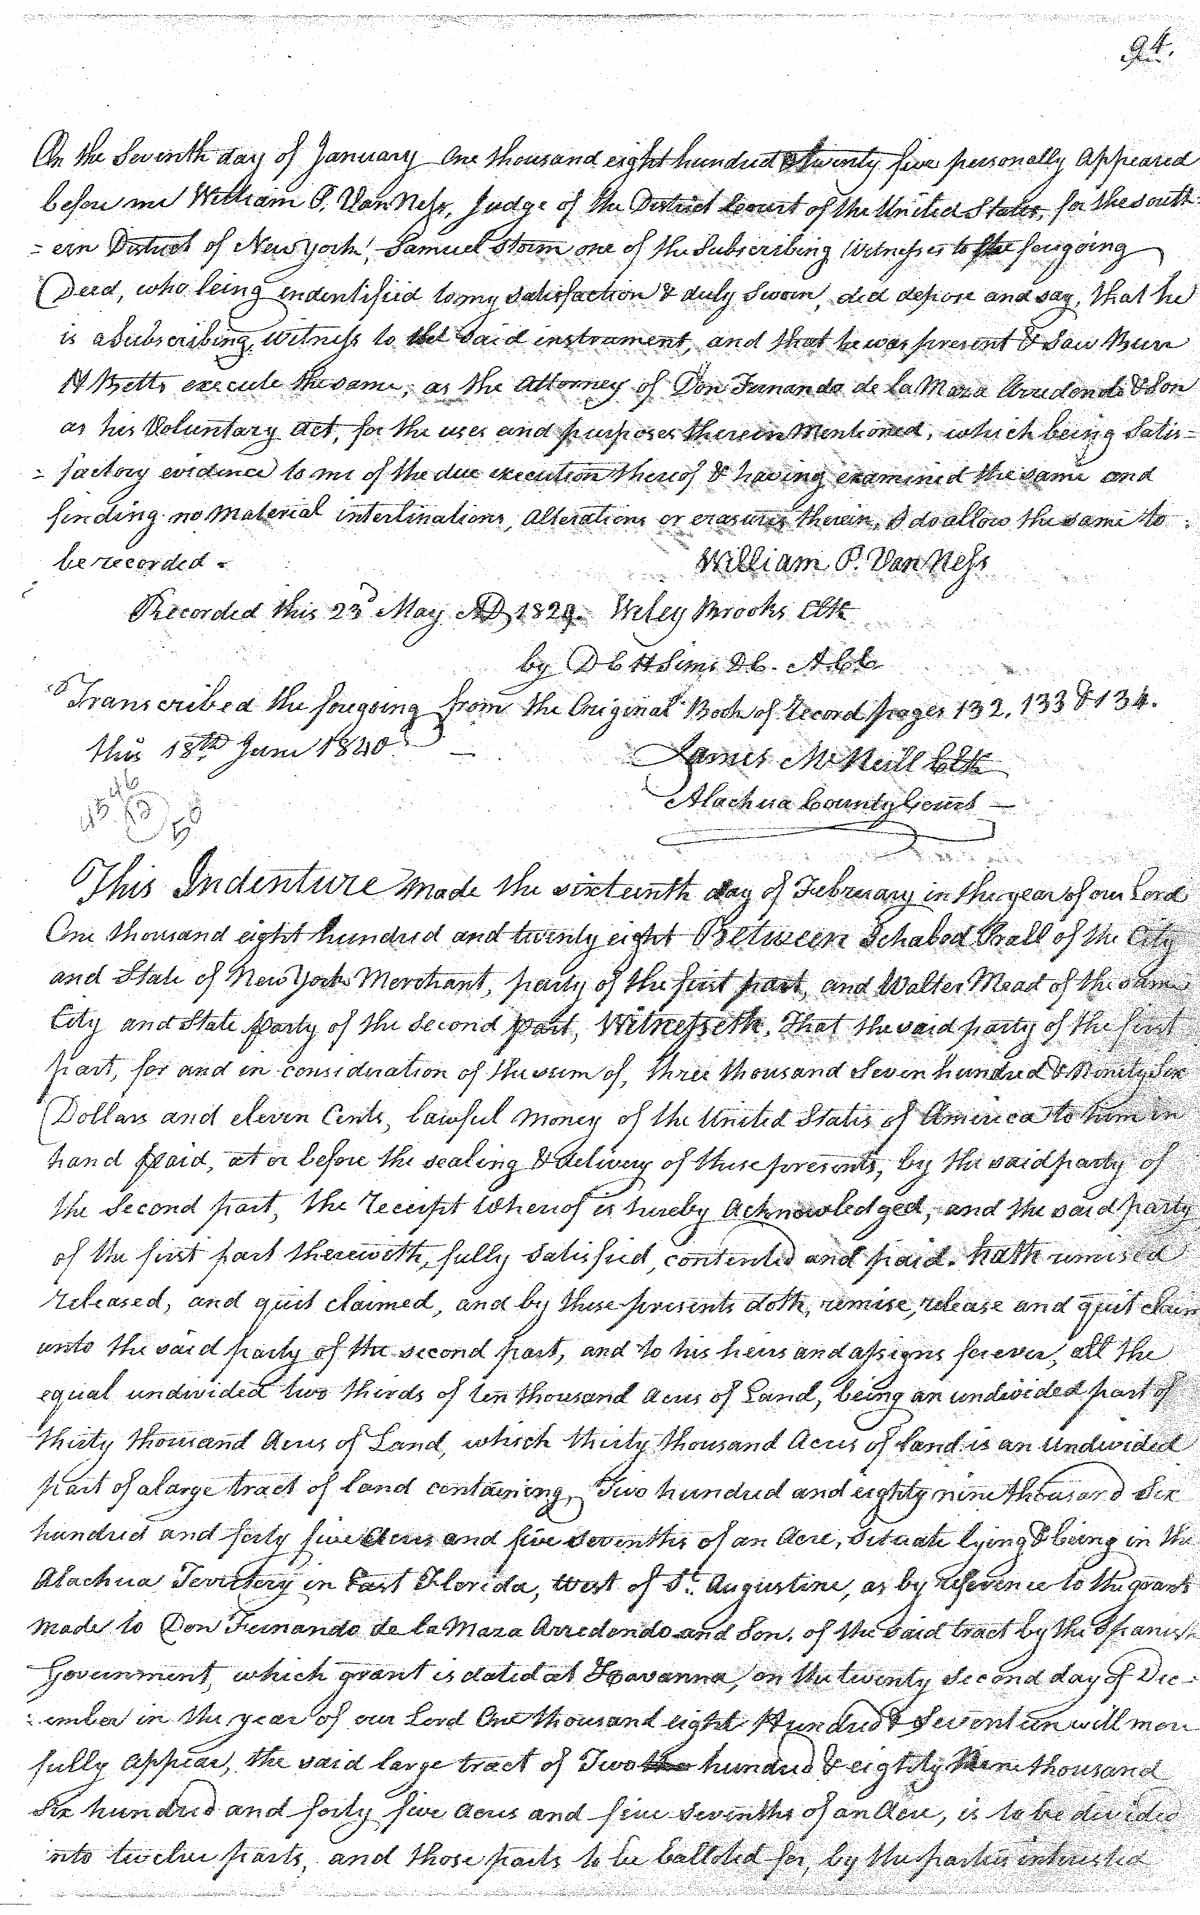 94.
On the Seventh day of January One thousand eight hundred & twenty five personally appeared
before me William P. Van Ness, Judge of the District Court of the United States, for the south-
=ern District of New York, Samuel Storm one of the Subscribing Witnesses to the foregoing
Deed, who being indentified to my satisfaction & duly Sworn, did depose and say, that he
is a Subscribing witness to the said instrument, and that he was present & Saw Burr
H Betts execute the same, as the Attorney of Don Fernando de la Maza Arredondo & Son
as his Voluntary act, for the uses and purposes therein Mentioned, which being Satis=
=factory evidence to me of the due execution thereof & having examined the same and
finding no Material interlinations, Alterations or erasures therein, I do allow the same to
be recorded -
William P. Van Ness
Recorded this 23d May AD 1829. Wiley Brooks Clk
by D C H Sims DC. A.C.C
Transcribed the foregoing from the Original Book of Record pages 132, 133 & 134.
this 18th June 1840 —
James McNeill Clk
Alachua County Court —
This Indenture Made the sixteenth day of February in the year of our Lord
One thousand eight hundred and twenty eight Between Ichabod Prall of the City
and State of New York Merchant, party of the first part, and Walter Mead of the same
City and State party of the second part, Witnesseth, That the said party of the first
part, for and in consideration of the sum of, three thousand Seven hundred & Ninety Six
Dollars and eleven Cents, lawful money of the United States of America to him in
hand paid, at or before the sealing & delivery of these presents, by the said party of
the Second part, the receipt whereof is hereby acknowledged, and the said party
of the first part therewith, fully satisfied, contented and paid. hath remised
released, and quit claimed, and by these presents doth, remise, release and quit claim
unto the said party of the second part, and to his heirs and assigns forever, all the
equal undivided two thirds of ten thousand Acres of Land, being an undivided part of
thirty thousand Acres of Land, which thirty thousand Acres of land is an undivided
part of a large tract of land containing, Two hundred and eighty nine thousand Six
hundred and forty five Acres and five sevenths of an Acre, situate lying & being in the
Alachua Territery in East Florida, West of St. Augustine, as by reference to the grant
made to Don Fernando de la Maza Arredondo and Son. of the said tract by the Spanish
Government, which grant is dated at Havanna, on the twenty second day of Dec-
-ember in the year of our Lord One thousand eight Hundred & Seventeen will more
fully appear, the said large tract of Two hundred & eighty Nine thousand
Six hundred and forty five Acres and five sevenths of an Acre, is to be divided
into twelve parts, and those parts to be balloted for, by the parties interested